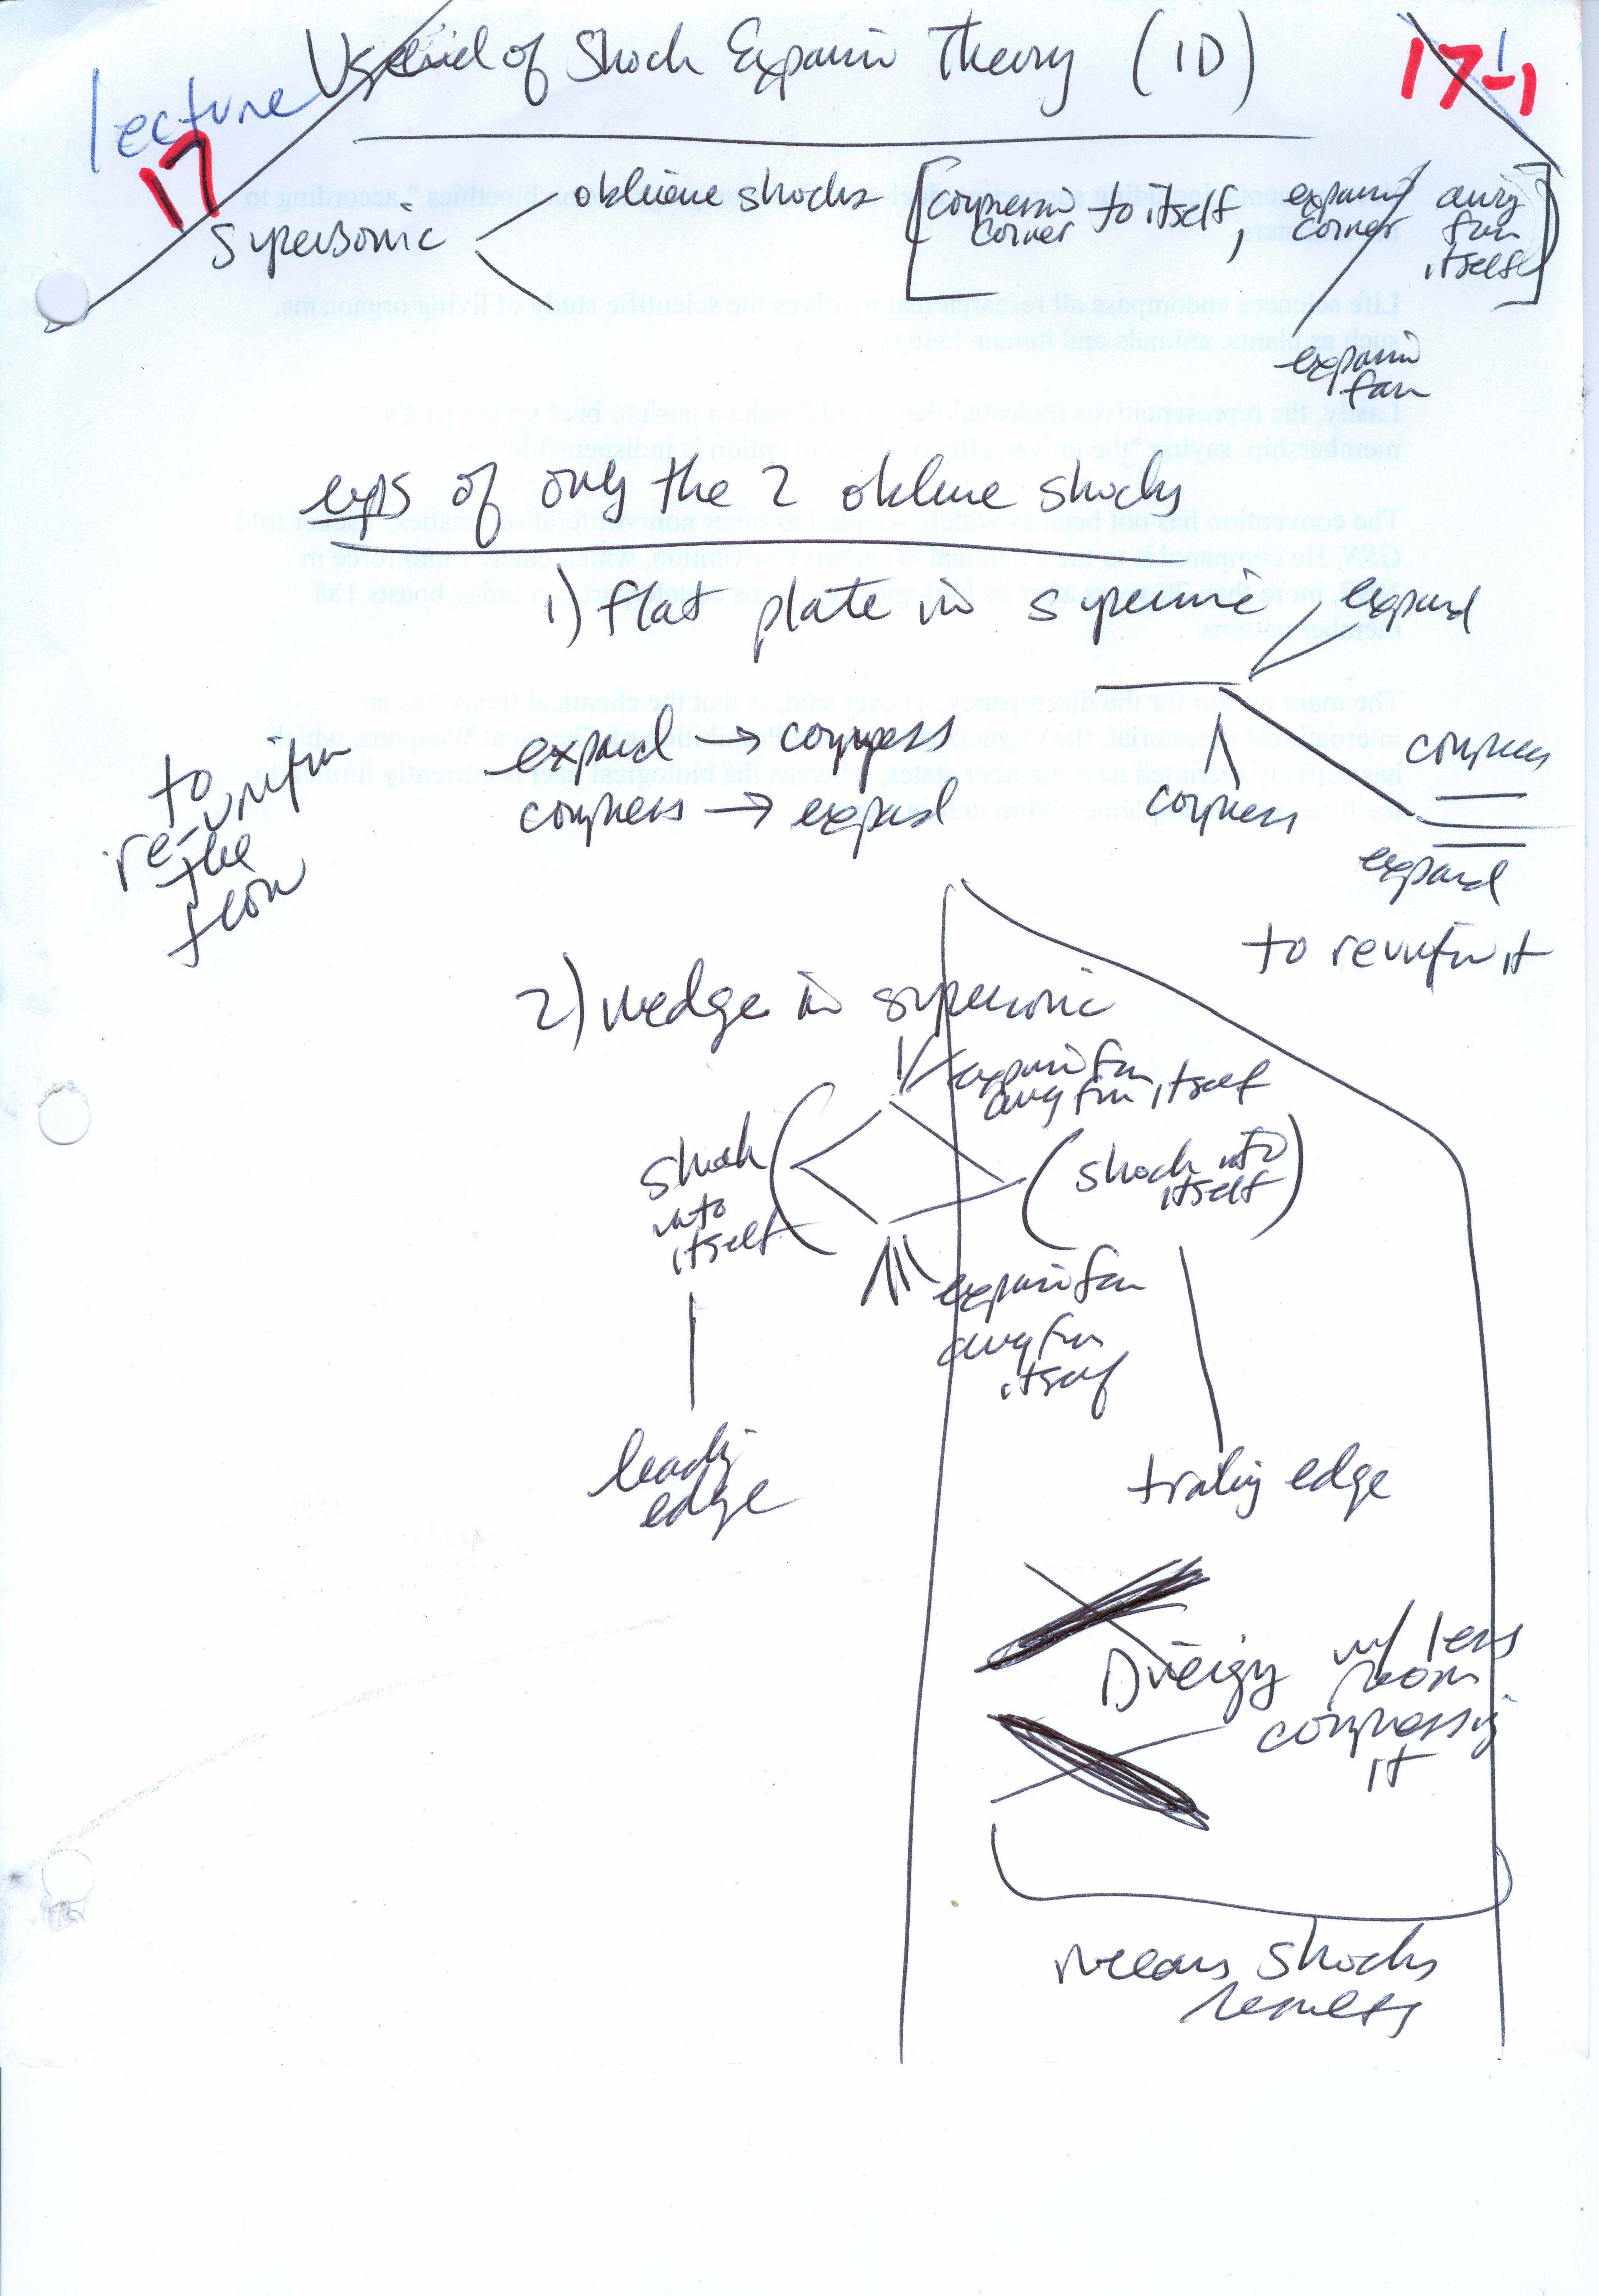 of Shock Expansion Theory (1D)
17-1
lecture
17
Supersonic
oblique shocks
[compression corner to itself, expansion corner away from itself]
expansion fan
exps of only the 2 oblique shocks
1) flat plate in supersonic
expand
expand → compress
compress → expand
to re-unifm the flow
compress
compress
expand
to reunifm it
2) wedge in supersonic
expansion fan away from itself
shock into itself
(shock into itself)
expansion fan away from itself
leading edge
trailing edge
w/ less room compressing it
means shocks results